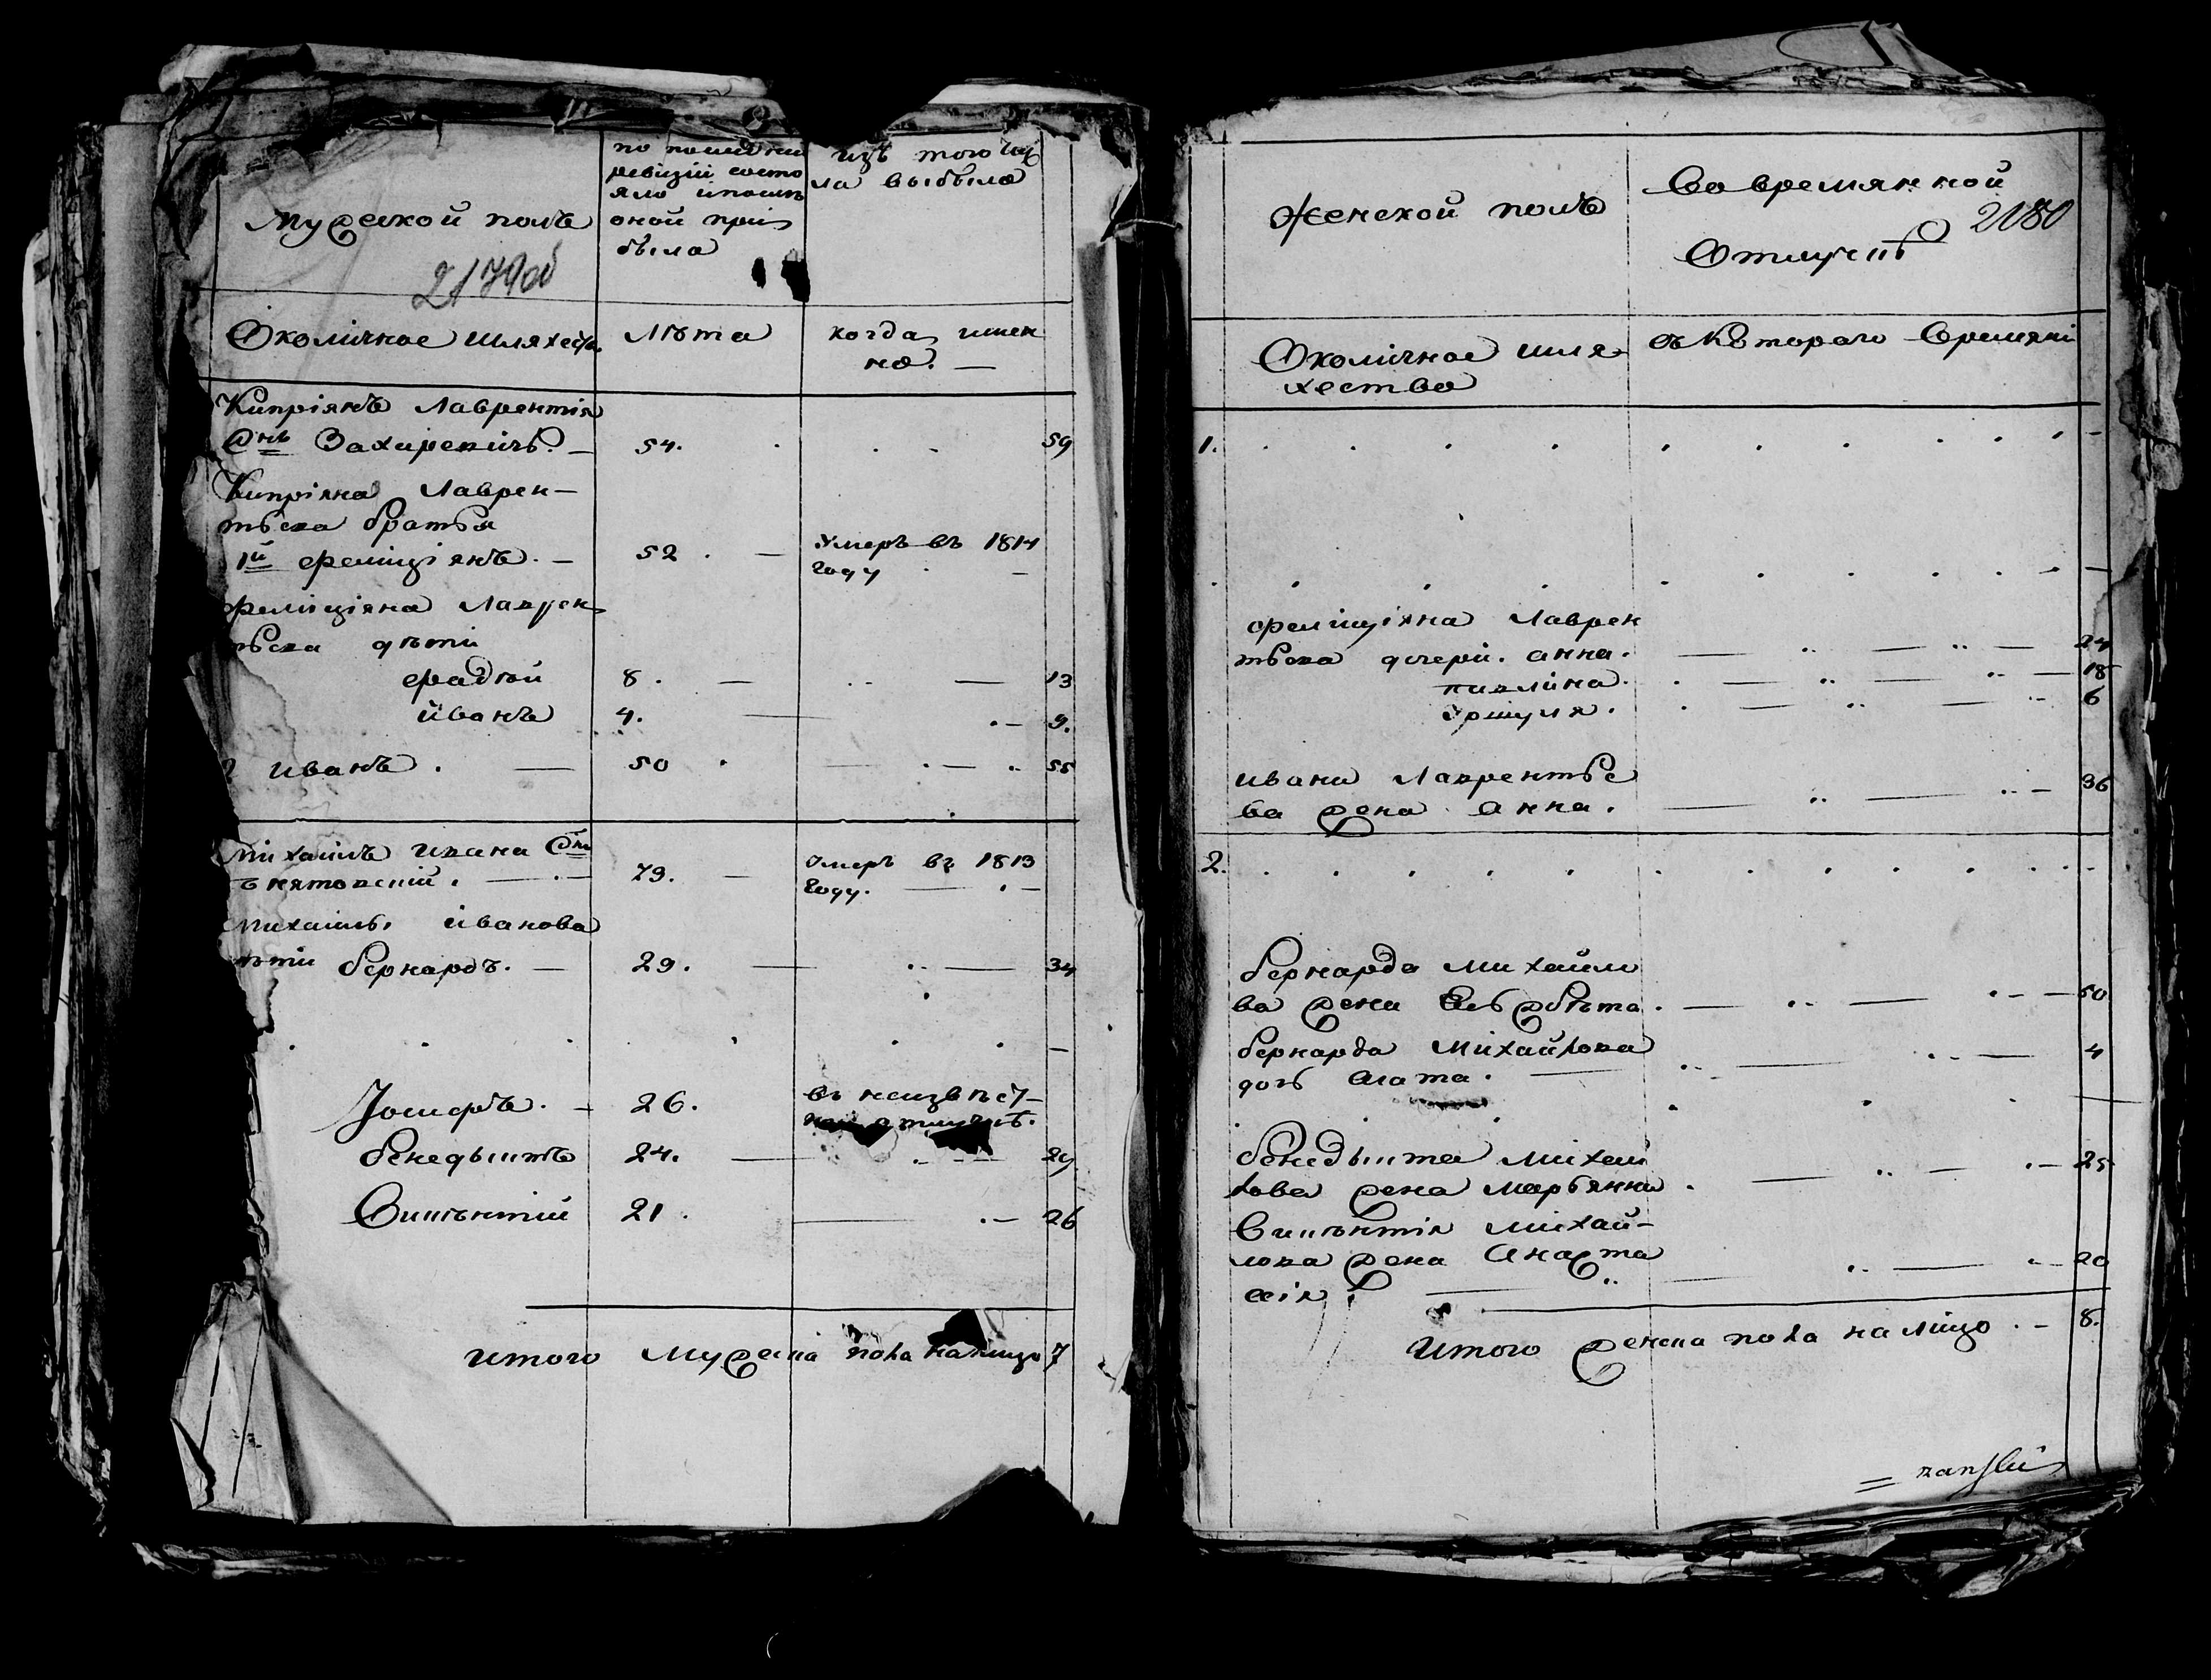 Мужеской полъ
2179об
по последней
ревизіи состо
яло и после
оной при
было
изъ того чис
ла выбыло
Околичное шляхество
Лѣта
когда, имен
но. —
Кипріянъ Лаврентія
Снъ Захаревичъ. —
54.
59
Кипріяна Лаврен—
тьева братья
1й фелиціянъ. —
52. —
Умеръ въ 1814
году —
фелиціяна Лаврен
тьева дѣти
фадѣй
8. —
13
йванъ
4.
9.
иванъ. —
50
55
Михаилъ ивана Снъ
нятовскій. —
79. —
Умеръ въ 1813
году. —
Михаила йванова
ѣти бернардъ. —
29. —
34
Іосифъ. —
26.
въ неизвѣст—
ной отлучкѣ.
бенедыктъ
24. —
29
Викентій
21.
26
итого Мужеска пола налицо 7
Женской полъ
Во временной
Отлучкѣ
2180
Околичное шля
хество
съ Котораго Времяни
1.
фелиціяна Лаврен
тьева дочери. анна. —
24
павлина. —
18
Уршуля. —
6
ивана Лаврентье
ва жена Анна. —
36
2.
бернарда Михайло
ва жена Ельжбѣта. —
50
бернарда Михайлова
дочь Агата. —
4
бенедыкта Михай
лова жена Марьянна. —
25
Викентія Михай—
лова жена Анаста
сія. —
20
Итого женска пола на лицо. — 8.